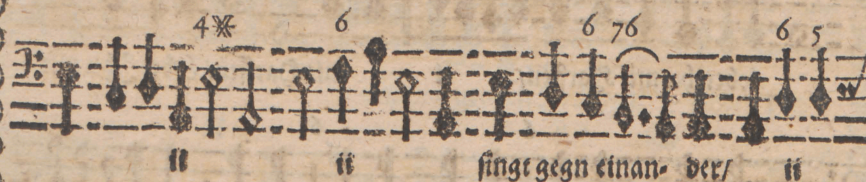 4※ 6 6 76 6 5
ii ii ſingt gegn einan- der/ ii